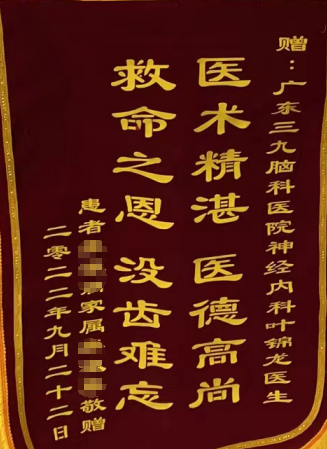 赠：广东三九脑科医院神经内科叶锦龙医生
医术精湛 医德高尚
救命之恩 没齿难忘
患者 家属 敬赠
二零二二年九月二十二日